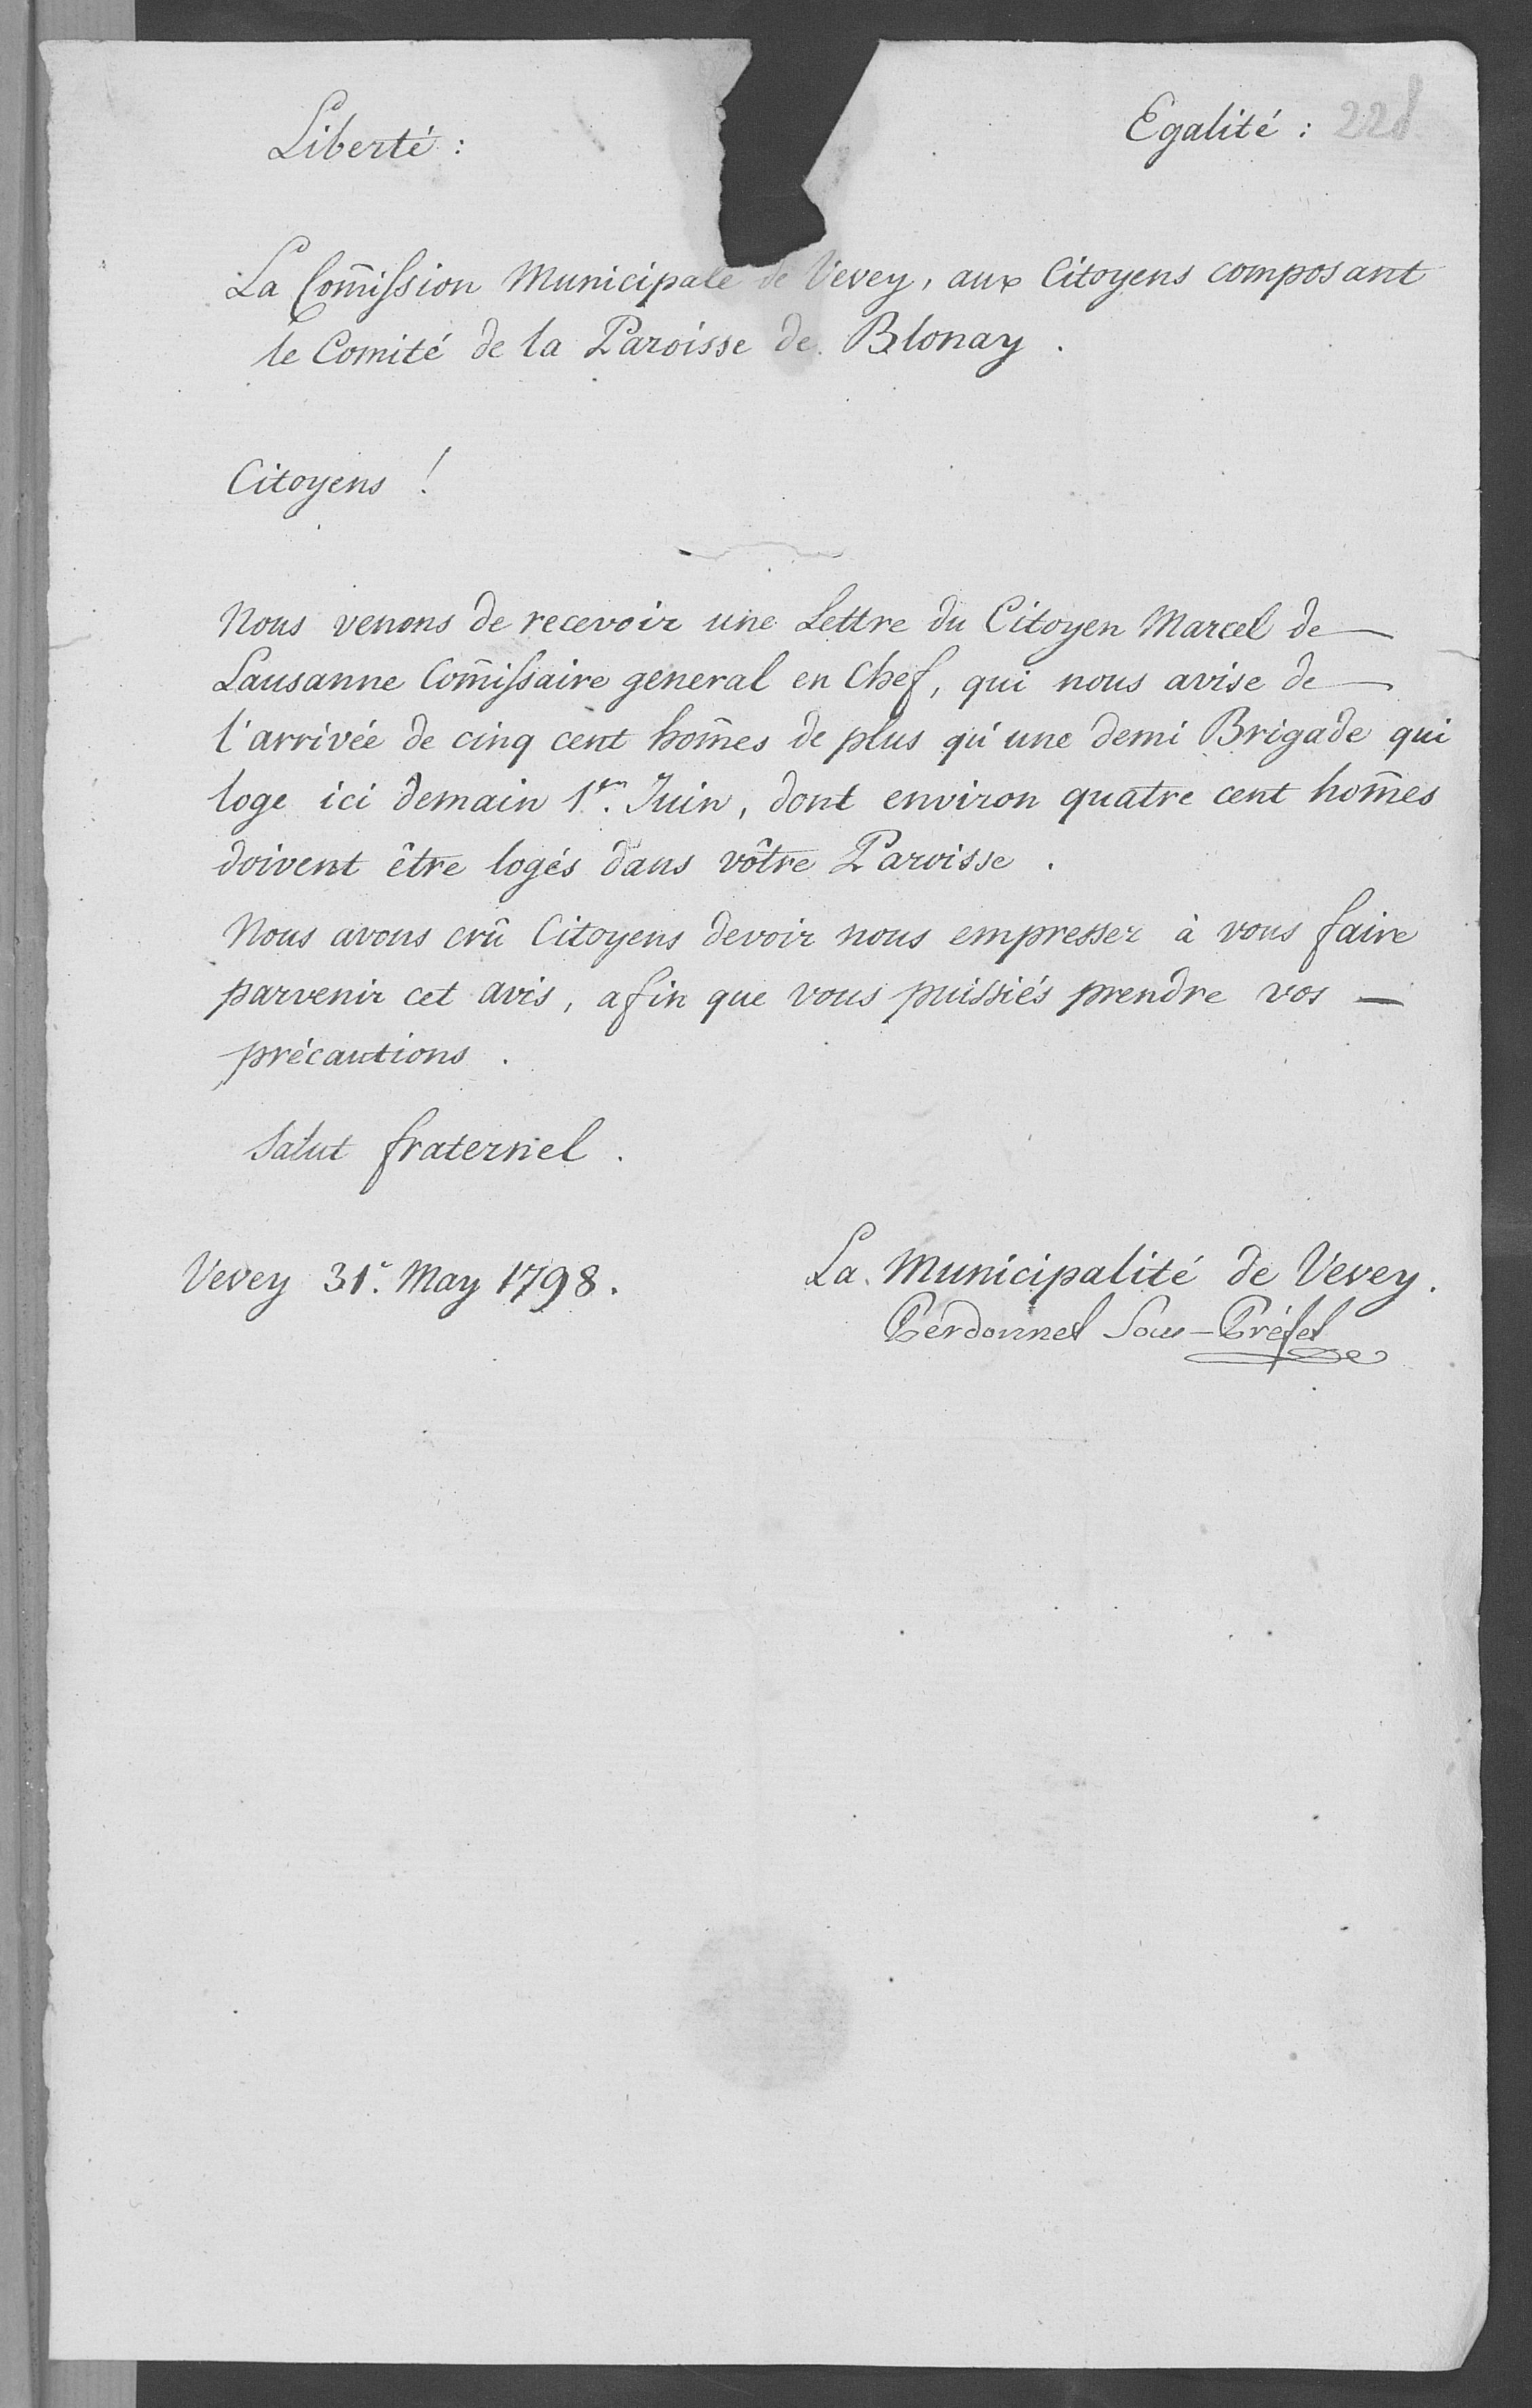 Liberté :
Egalité :
La Com̅ission Municipale de Vevey, aux Citoyens composant
le Comité de la Paroisse de Blonay .
Citoyens !
Nous venons de recevoir une Lettre du Citoyen Marcel de —
Lausanne Com̅issaire general en Chef, qui nous avise de —
l'arrivée de cinq cent hom̅es de plus qu'une demi Brigade qui
loge ici demain 1er. Juin, dont environ quatre cent hom̅es
doivent être logés dans vôtre Paroisse .
Nous avons crû Citoyens devoir nous empresser à vous faire
parvenir cet avis, afin que vous puissiés prendre vos —
précautions .
Salut fraternel .
Vevey 31r. May 1798.
La Municipalité de Vevey.
Perdonnet Sous-Préfet